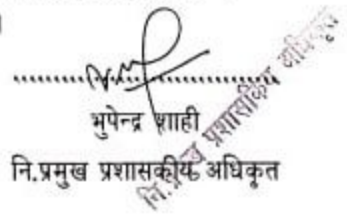 भुपेन्द्र शाही
नि.प्रमुख प्रशासकीय अधिकृत
नि.प्रमुख प्रशासकिय अधिकृत